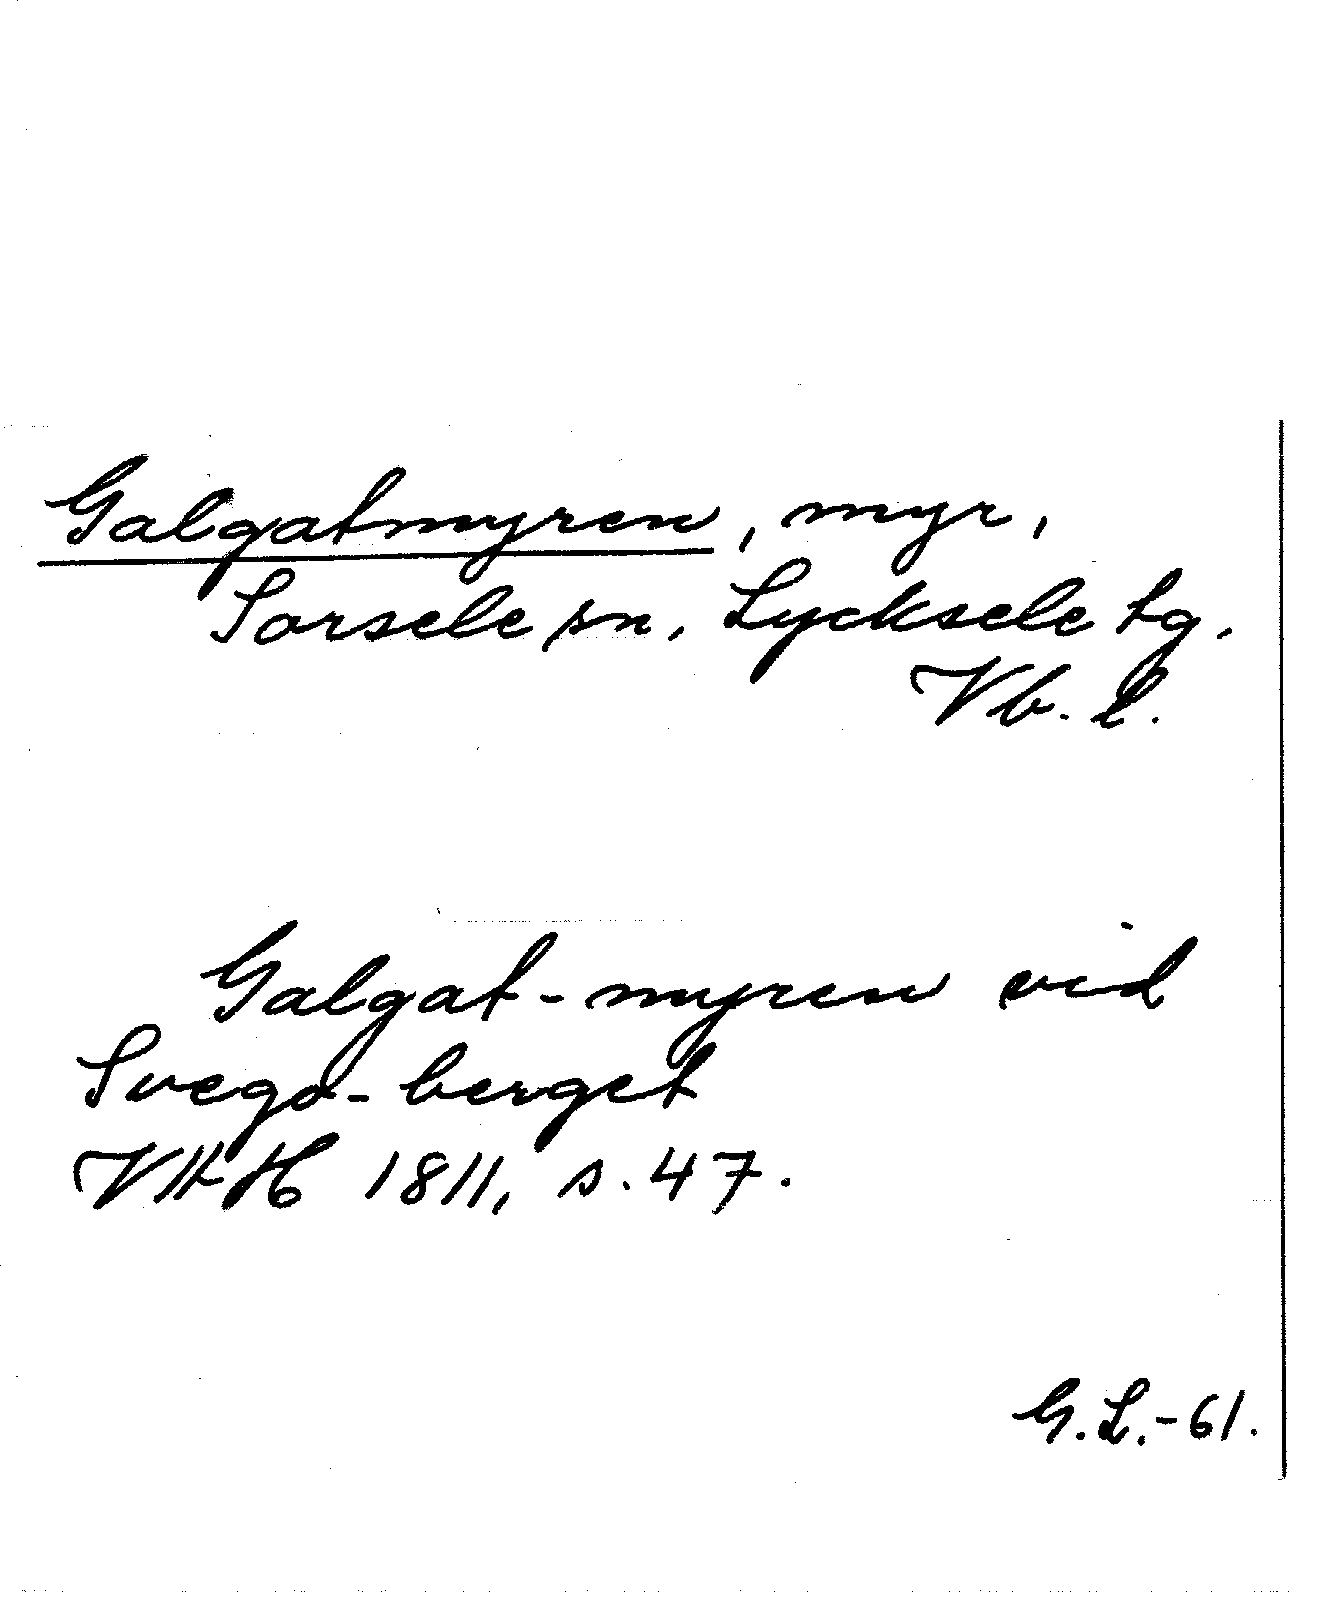 Galgatmyren, myr,
Sorsele sn, Lycksele tg.
Vb. l.
Galgat-myren vid
Svego-berget
1811, s. 47.
G.L.-61.